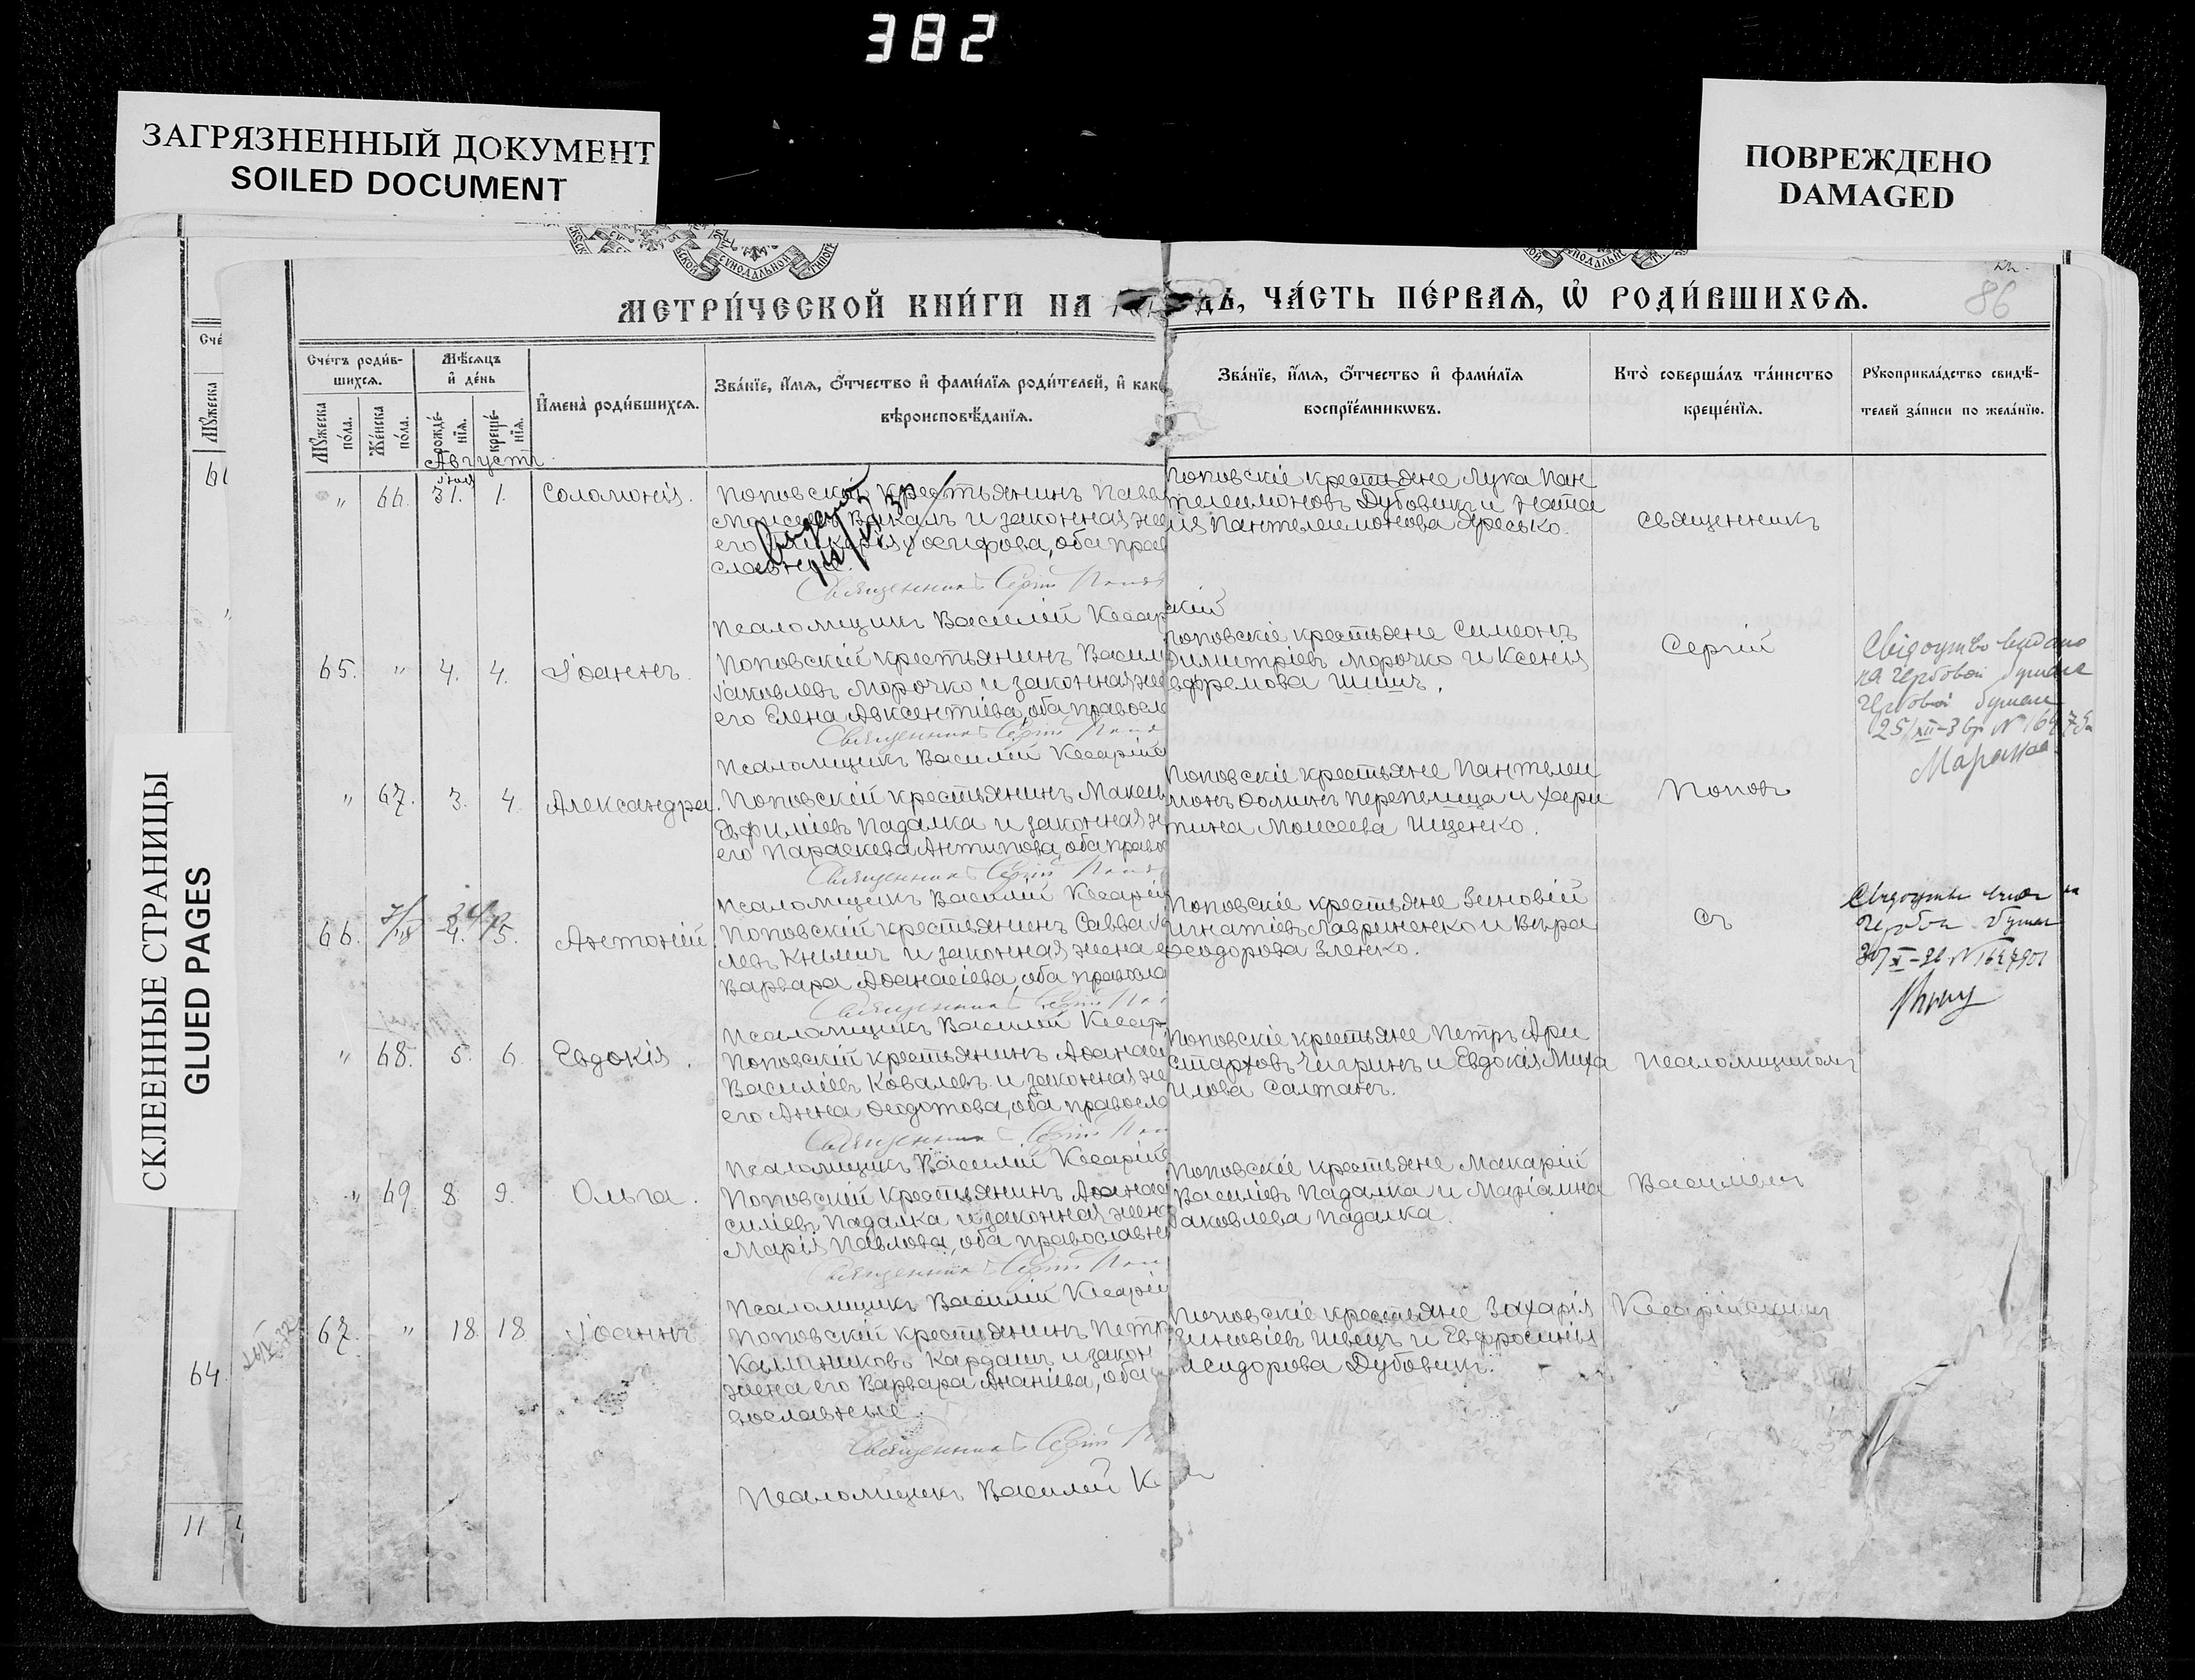 382
ЗАГРЯЗНЕННЫЙ ДОКУМЕНТ
SOILED DOCUMENT
ПОВРЕЖДЕНО
DAMAGED
СКЛЕЕННЫЕ СТРАНИЦЫ
GLUED PAGES
МЕТРИ́ЧЕСКОЙ КНИ́ГИ НА
ДЪ, ЧА́СТЬ ПЕ́РВАѦ, Ѽ РОДИ́ВШИХСѦ.
86
Сче́тъ роди́в-
шихсѧ.
Мѣ́сѧцъ
и҆ де́нь
И҆мена̀ роди́вшихсѧ.
Зва́нїе, и҆́мѧ, ѻ҆́тчество и҆ фами́лїѧ роди́телей, и҆ как
вѣроисповѣ́данїѧ.
Зва́нїе, и҆́мѧ, ѻ҆́тчество и҆ фами́лїѧ
воспрїе́мникѡвъ.
Кто̀ соверша́лъ та́инство
креще́нїѧ.
Рꙋкоприкла́дство свидѣ́-
телей за́писи по жела́нїю.
Мꙋ́жеска
по́ла.
Же́нска
по́ла.
рожде́-
нїѧ.
креще́-
нїѧ.
Августъ
Іюля
" 66. 31. 1. Соломонія.
Поповскій крестьянинъ Павл
Моисеевъ Вакалъ и законная же
его Гликерія Іосифова, оба прав
славные.
Священникъ Сергій Попов
Псаломщикъ Василій Кесар
Поповскіе крестьяне Лука Пан
телеимоновъ Дубовикъ и Ната
лія Пантелеимонова Яресько.
священникъ
скій
65. " 4. 4. Іоаннъ.
Поповскій крестьянинъ Васил
Іаковлевъ Морочко и законная же
его Елена Авксентіева, оба правосл
Священникъ Сергій Попов
Псаломщикъ Василій Кесарійс
Поповскіе крестьяне Симеонъ
Димитріевъ Морочко и Ксенія
Ефремова Шишъ.
Сергій
Свідоцтво видано
на гербовой бумаге
гербовой бумаги
25/XII-36р №
" 67. 3. 4. Александра.
Поповскій крестьянинъ Макси
Евфиміевъ Падалка и законная же
его Параскева Антипова, оба право
Священникъ Сергій Попов
Псаломщикъ Василій Кесарій
Поповскіе крестьяне Пантелеи
монъ Ѳоминъ Перепелица и Хари
тина Моисеева Ищенко.
Поповъ
66. 4. 5. Антоній
Поповскій крестьянинъ Савва
левъ Кнышъ и законная жена е
Варвара Аѳанасіева, оба правосла
Священникъ Сергій Поп
Псаломщикъ Василій Кесар
Поповскіе крестьяне Зиновій
Игнатіевъ Лавриненко и Вѣра
Ѳеодорова Зленко.
съ
" 68. 5. 6. Евдокія.
Поповскій крестьянинъ Аѳанас
Василіевъ Ковалевъ и законная же
его Анна Ѳеодотова, оба правосла
Священникъ Сергій Поп
Псаломщикъ Василій Кесарій
Поповскіе крестьяне Петръ Ари
старховъ Чигринъ и Евдокія Миха
илова Салтанъ.
псаломщикомъ
" 69. 8. 9. Ольга.
Поповскій крестьянинъ Аѳанас
силіевъ Падалка и законная жена
Марія Павлова, оба православны
Священникъ Сергій Поп
Псаломщикъ Василій Кесарій
Поповскіе крестьяне Макарій
Василіевъ Падалка и Маріамна
Іаковлева Падалка.
Василіемъ
67. " 18. 18 Іоаннъ
Поповскій крестьянинъ Петр
Калиниковъ Кардашъ и закон
жена его Варвара Ананіева, оба
вославные.
Священникъ Сергій П
Псаломщикъ Василій К
Поповскіе крестьяне Захарія
Зиновіевъ Швецъ и Евфросинія
Исидорова Дубовикъ.
Кесарійскимъ
64.
11